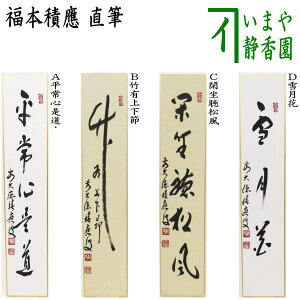 福本積應 直筆
いまや
静香園
A平常心是道
B竹有上下節
C閑坐聴松風
D雪月花
平常心是道
竹
有上下節
閑坐聴松風
雪月花